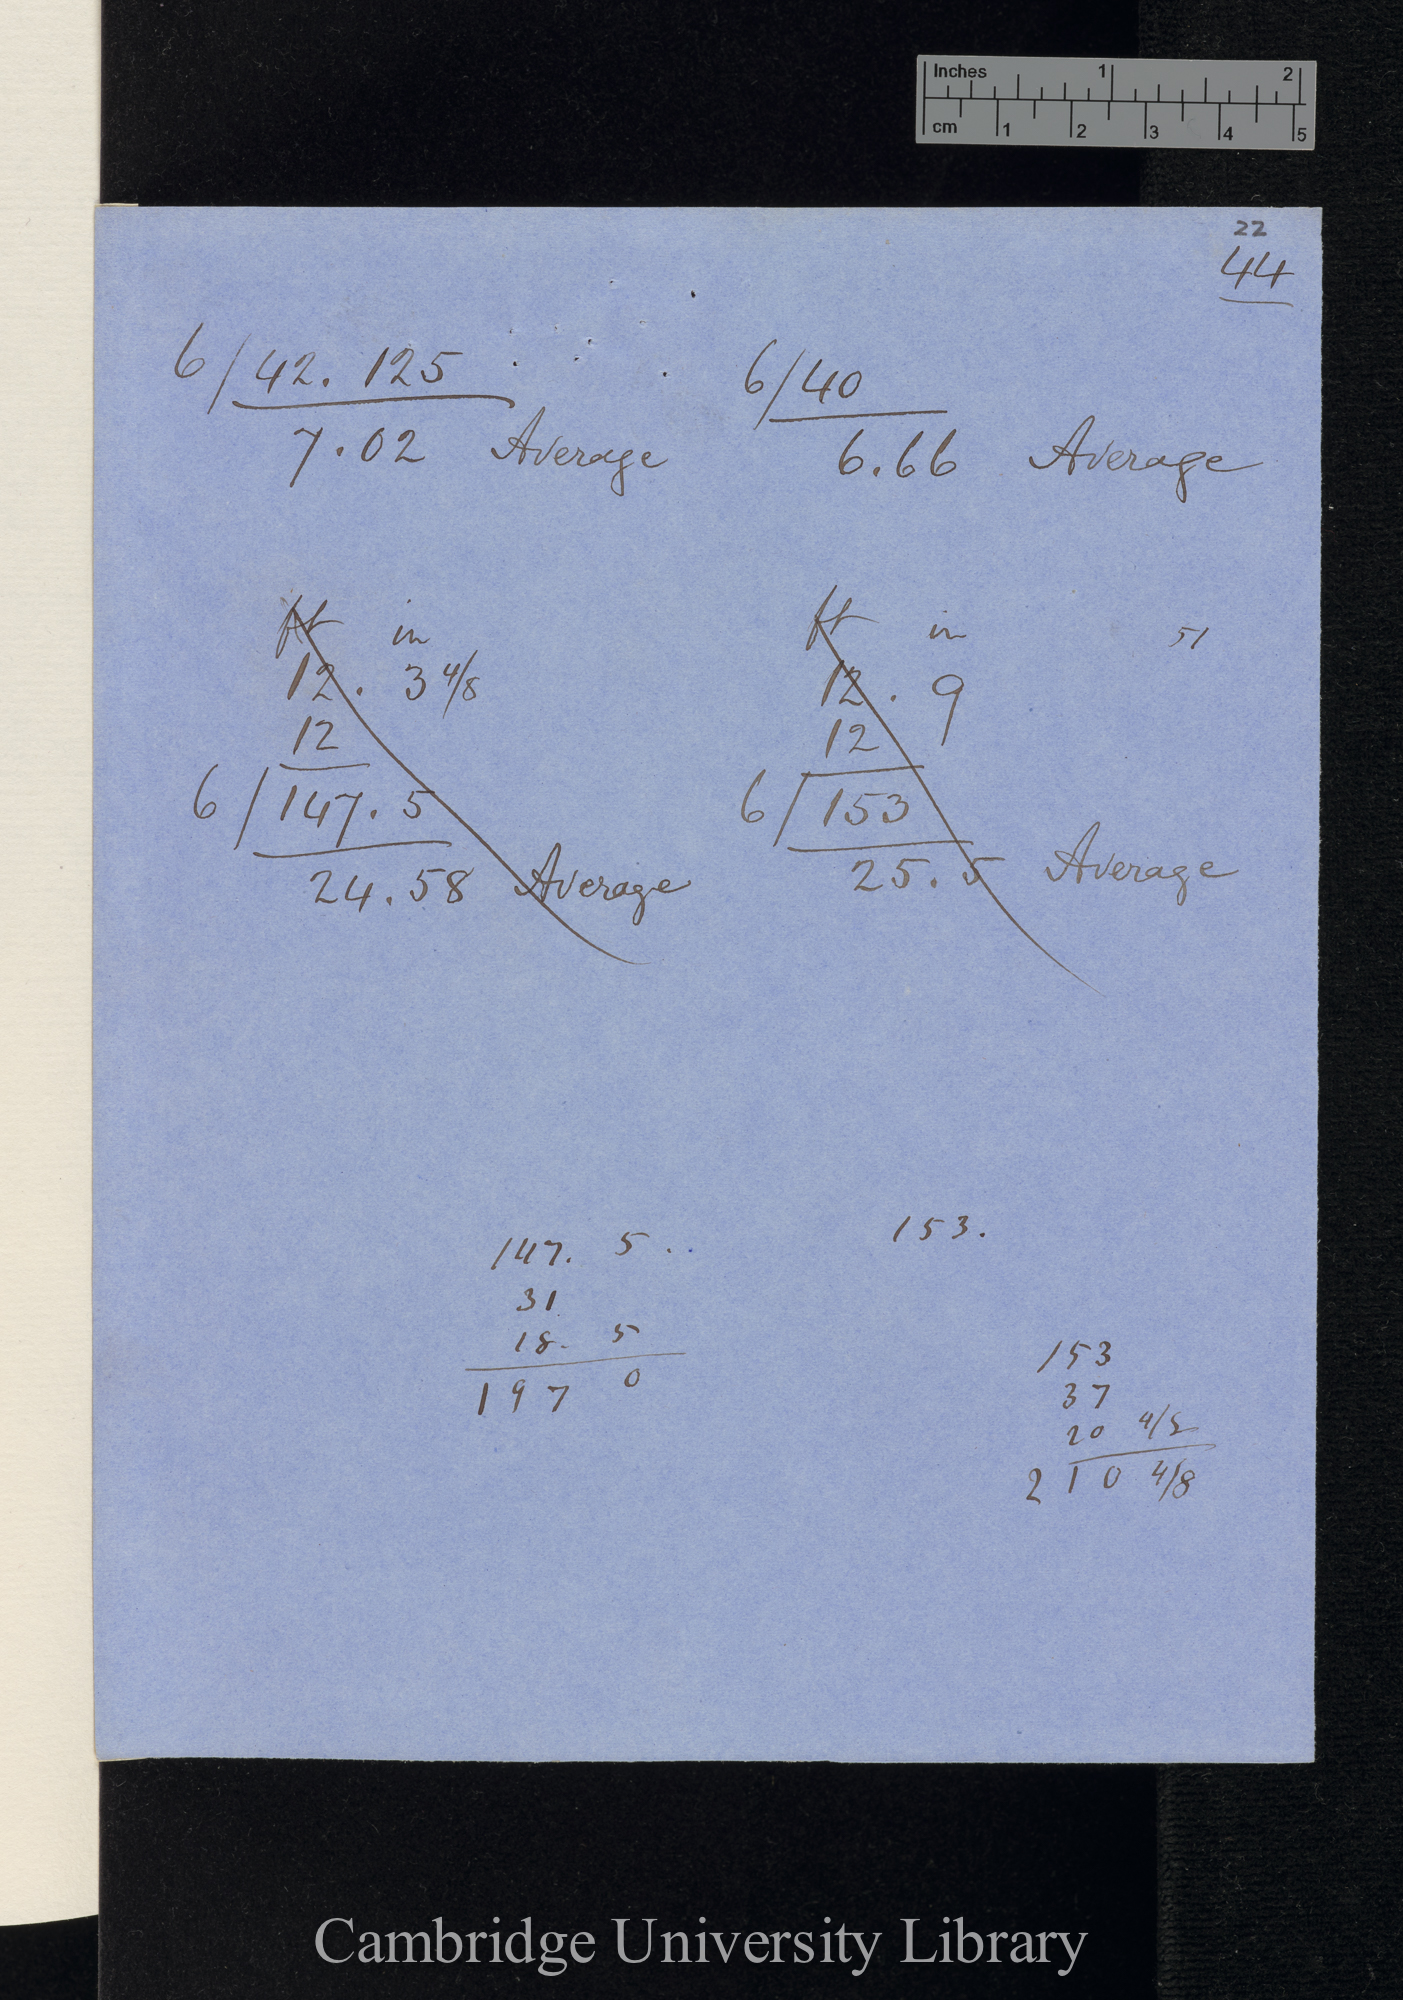 Inches 1 2
cm 1 2 3 4 5
22
44
6/42. 125
7.02 Average
6/40
6.66 Average
ft in
12. 3 4/8
12
6/147. 5
24.58 Average
ft in
12. 9
12
6/153
25.5 Average
51
147. 5.
31
18. 5
197 0
153.
153
37
20 4/8
210 4/8
Cambridge University Library